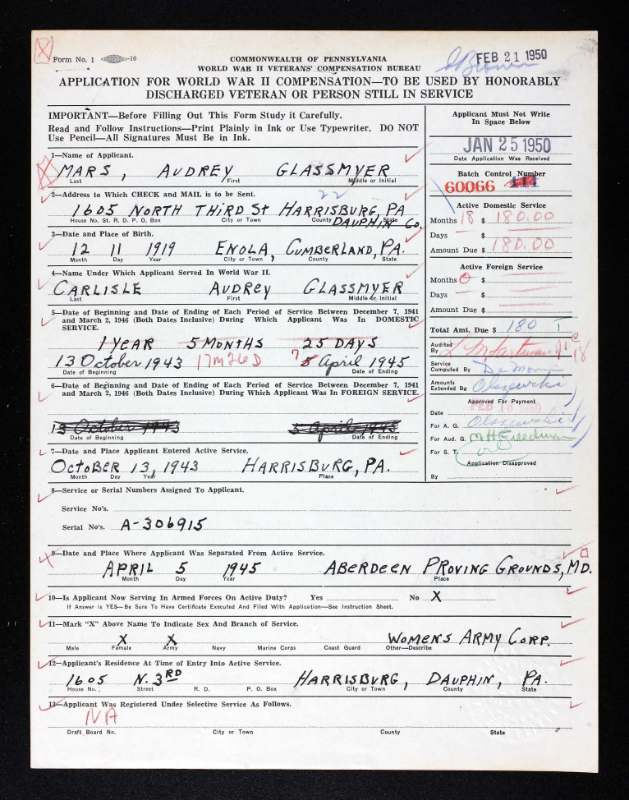 Form No. 1
COMMONWEALTH OF PENNSYLVANIA
WORLD WAR II VETERANS' COMPENSATION BUREAU
FEB 21 1950
APPLICATION FOR WORLD WAR II COMPENSATION—TO BE USED BY HONORABLY
DISCHARGED VETERAN OR PERSON STILL IN SERVICE
IMPORTANT—Before Filling Out This Form Study it Carefully.
Read and Follow Instructions—Print Plainly in Ink or Use Typewriter. DO NOT
Use Pencil—All Signatures Must Be in Ink.
Applicant Must Not Write
In Space Below
JAN 25 1950
Date Application Was Received
Batch Control Number
60066
1—Name of Applicant.
MARS, AUDREY GLASSMYER
Last First Middle or Initial
2—Address to Which CHECK and MAIL is to be Sent.
22
1605 NORTH THIRD St HARRISBURG, PA
DAUPHIN Co.
House No. St. R. D. P. O. Box City or Town County State
3—Date and Place of Birth.
12 11 1919 ENOLA, CUMBERLAND, PA.
Month Day Year City or Town County State
4—Name Under Which Applicant Served In World War II.
CARLISLE AUDREY GLASSMYER
Last First Middle or Initial
5—Date of Beginning and Date of Ending of Each Period of Service Between December 7, 1941
and March 2, 1946 (Both Dates Inclusive) During Which Applicant Was In DOMESTIC
SERVICE.
1 YEAR 5 MONTHS 25 DAYS
13 October 1943 17m26D 5 April 1945
Date of Beginning Date of Ending
6—Date of Beginning and Date of Ending of Each Period of Service Between December 7, 1941
and March 2, 1946 (Both Dates Inclusive) During Which Applicant Was In FOREIGN SERVICE.
13 October 1943 5 April 1945
Date of Beginning Date of Ending
7—Date and Place Applicant Entered Active Service.
OCTOBER 13, 1943 HARRISBURG, PA.
Month Day Year Place
Active Domestic Service
Months 18 $ 180.00
Days $
Amount Due $ 180.00
Active Foreign Service
Months 0 $
Days $
Amount Due $
Total Amt. Due $ 180
Audited
By
Service
Computed By
Amounts
Extended By
Approved For Payment
Date
For A. G.
For Aud. G.
For S. T.
Application Disapproved
By
8—Service or Serial Numbers Assigned To Applicant.
Service No's.
Serial No's. A-306915
9—Date and Place Where Applicant Was Separated From Active Service.
APRIL 5 1945 ABERDEEN PROVING GROUNDS, MD.
Month Day Year Place
10—Is Applicant Now Serving In Armed Forces On Active Duty? Yes No X
If Answer is YES—Be Sure To Have Certificate Executed And Filed With Application—See Instruction Sheet.
11—Mark "X" Above Name To Indicate Sex And Branch of Service.
X X WOMENS ARMY CORP.
Male Female Army Navy Marine Corps Coast Guard Other—Describe
12—Applicant's Residence At Time of Entry Into Active Service.
1605 N. 3RD HARRISBURG, DAUPHIN, PA.
House No. Street R. D. P. O. Box City or Town County State
13—Applicant Was Registered Under Selective Service As Follows.
NA
Draft Board No. City or Town County State